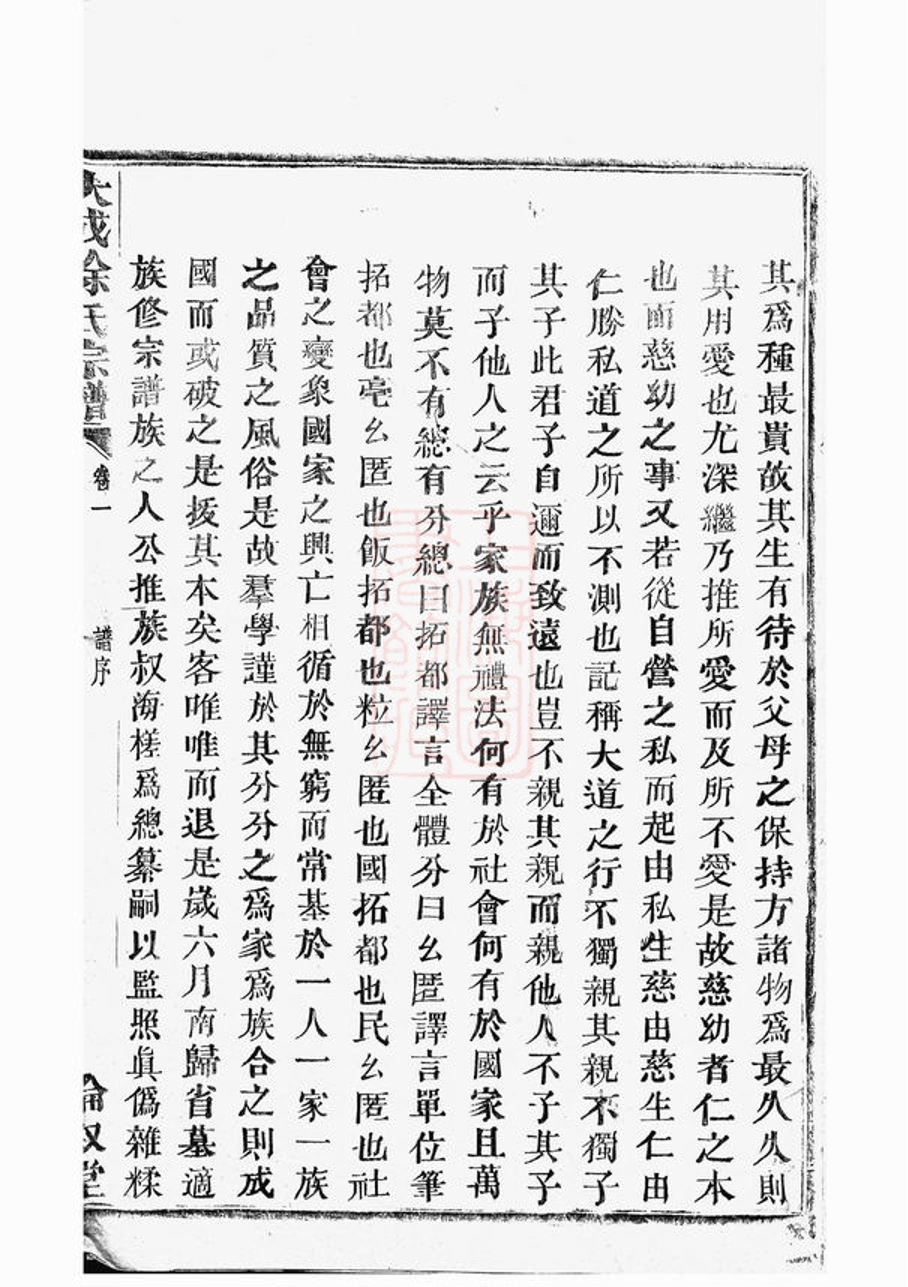 其爲種最貴故其生有待於父母之保持方諸物爲最久久則
其用愛也尤深繼乃推所愛而及所不愛是故慈幼者仁之本
也而慈幼之事又若從自營之私而起由私生慈由慈生仁由
仁勝私道之所以不測也記稱大道之行不獨親其親不獨子
其子此君子自邇而致遠也豈不親其親而親他人不子其子
而子他人之云乎家族無禮法何有於社會何有於國家且萬
物莫不有總有分總曰拓都譯言全體分曰幺匿譯言單位筆
拓都也亳幺匿也飯拓都也粒幺匿也國拓都也民幺匿也社
會之變象國家之興亡相循於無窮而常基於一人一家一族
之品質之風俗是故羣學謹於其分分之爲家爲族合之則成
國而或破之是拔其本矣客唯唯而退是歲六月南歸省墓適
族修宗譜族之人公推族叔海槎爲總纂嗣以監照眞僞雜糅
大成徐氏宗譜 卷一 譜序 倫叙堂